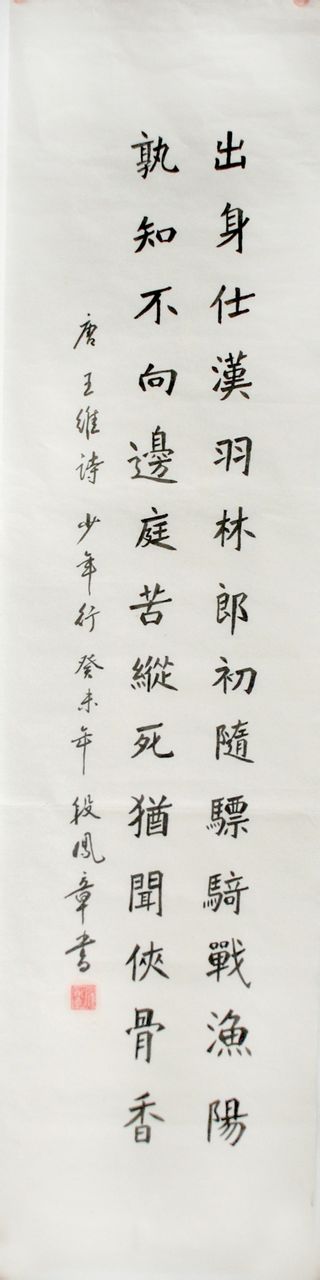 出身仕漢羽林郎初隨驃騎戰漁陽
孰知不向邊庭苦縱死猶聞俠骨香
唐王維詩少年行癸未年段鳳章書